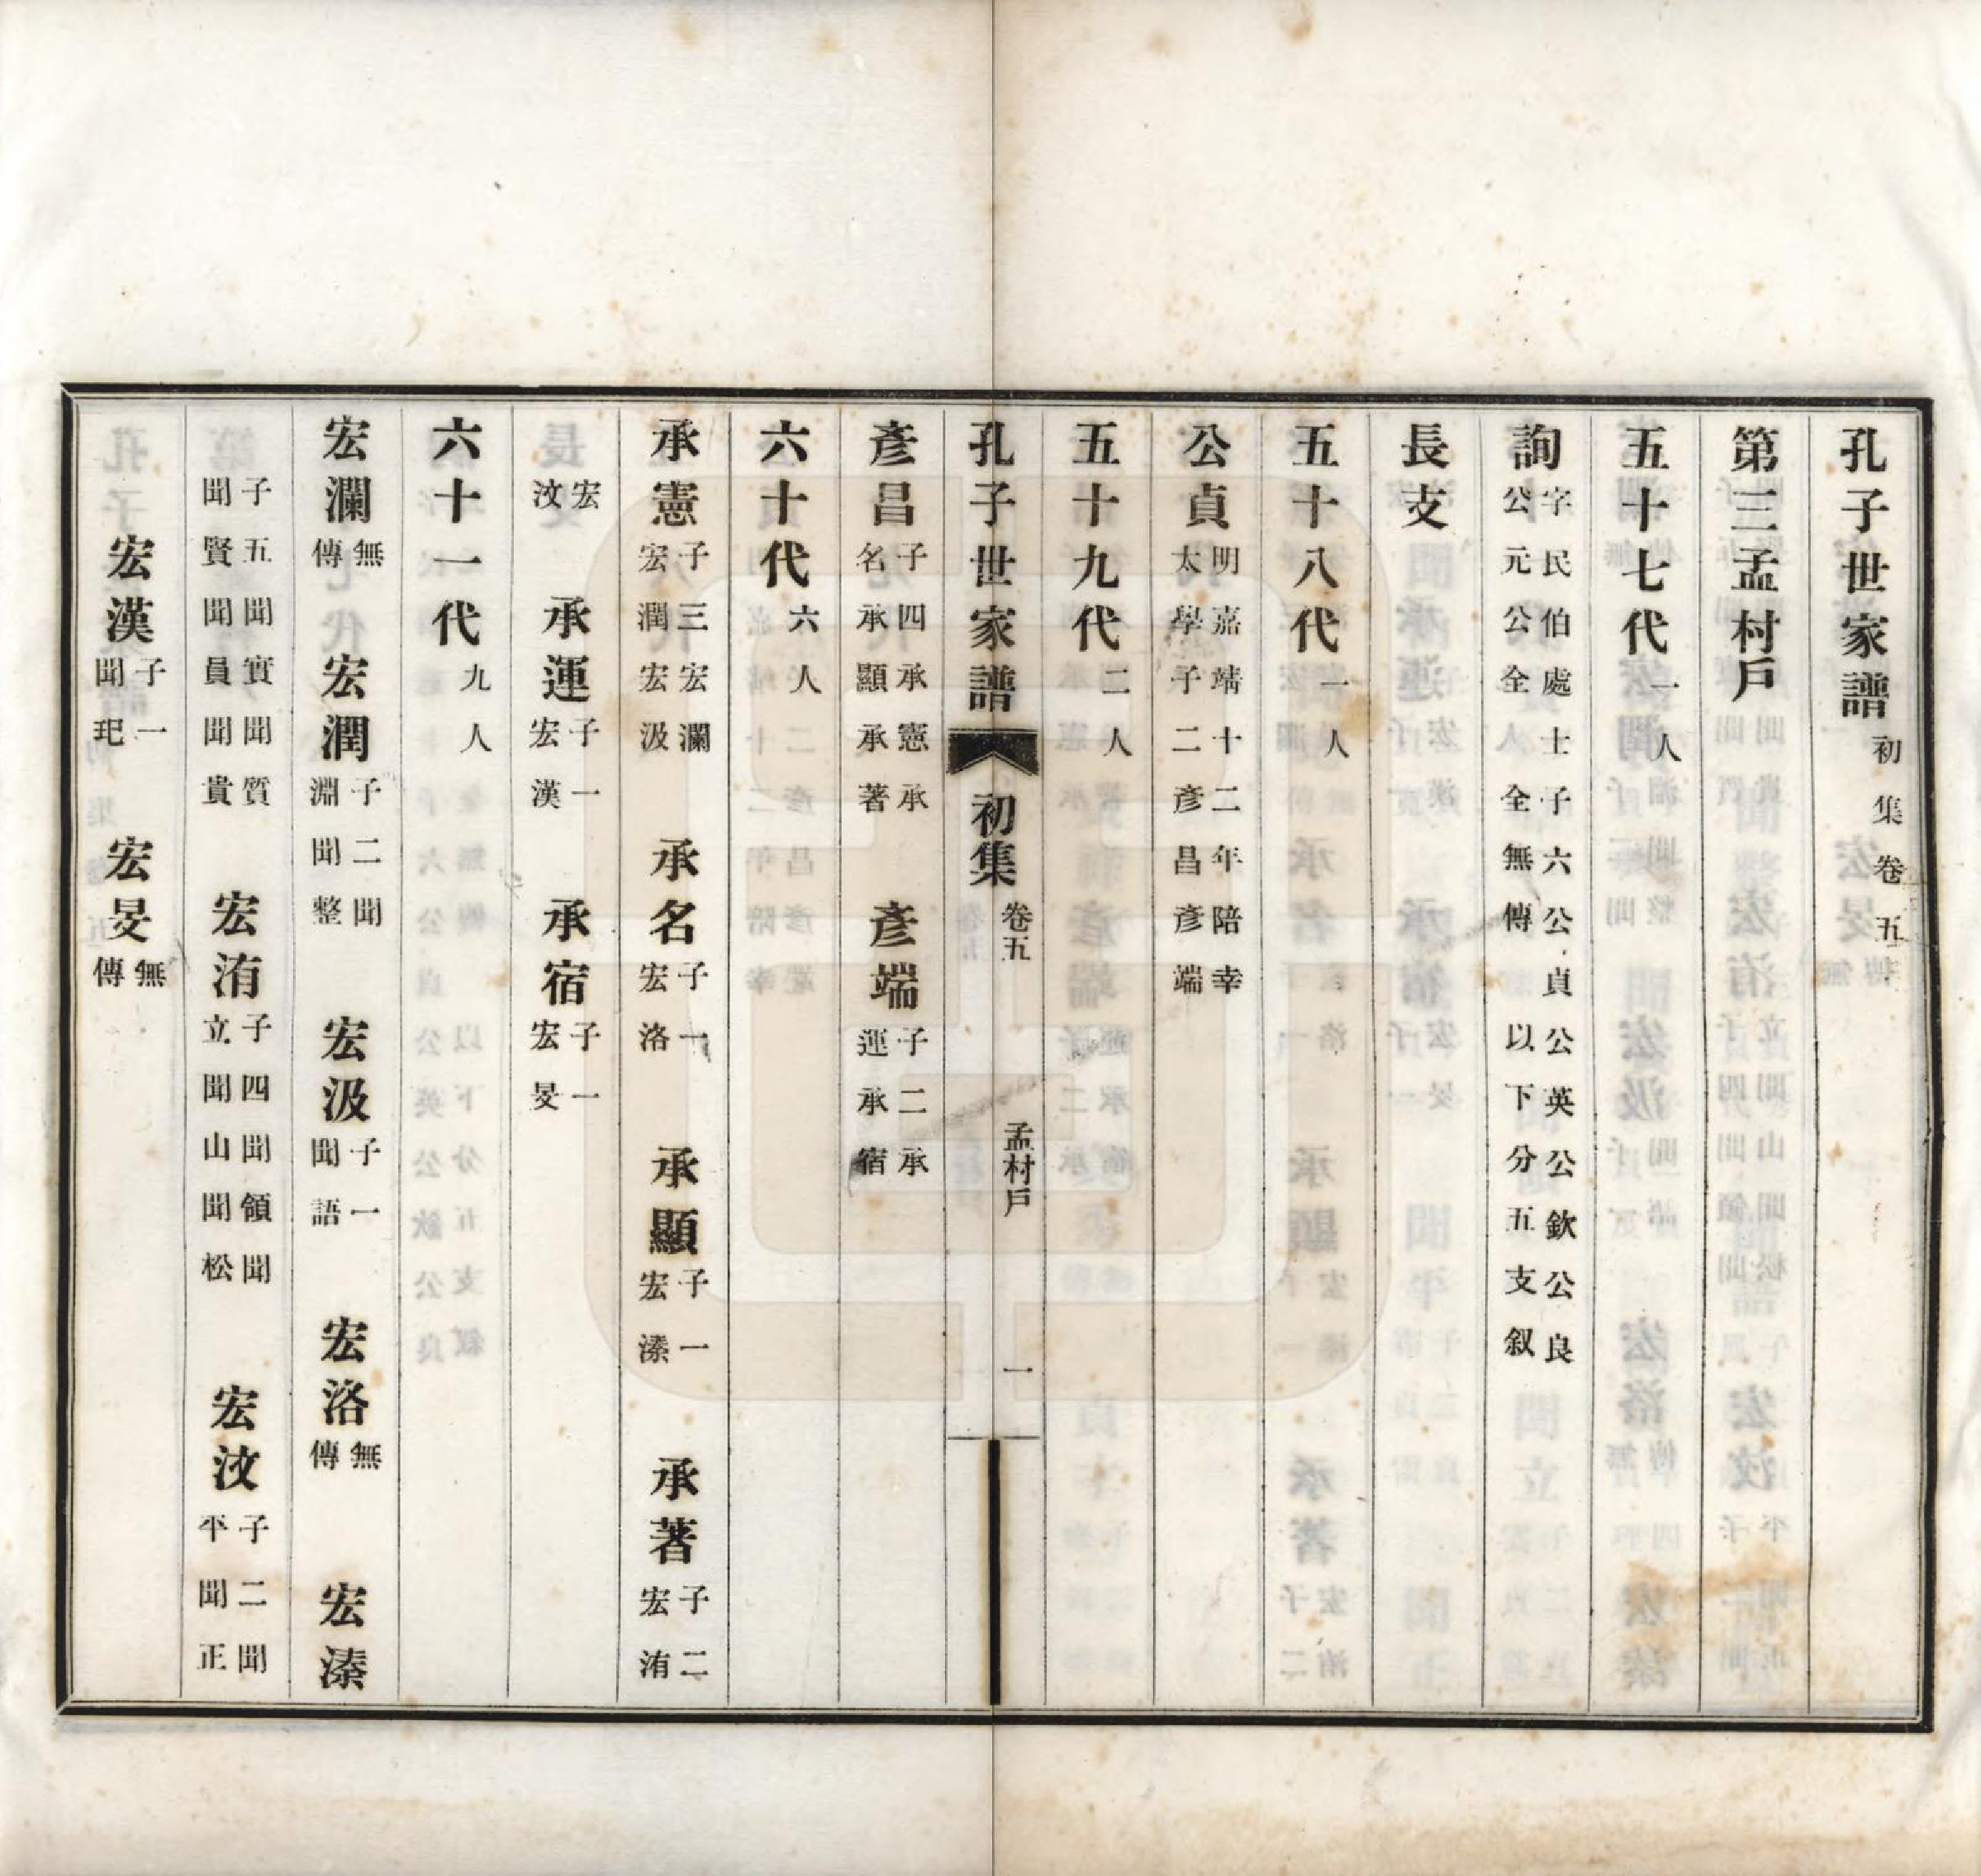 孔子世家譜初集卷五
第三孟村戶
五十七代一人
詢字民伯處士子六公貞公英公欽公良公元公全人全無傳以下分五支叙
長支
五十八代一人
公貞明嘉靖十二年陪幸太學子二彥昌彥端
五十九代二人
孔子世家譜 初集 卷五 孟村戶 一
彥昌子四承憲承名承顯承著 彥端子二承運承宿
六十代六人
承憲子三宏瀾宏潤宏汲 承名子一宏洛 承顯子一宏溱 承著子二宏洧
宏汶 承運子一宏漢 承宿子一宏旻
六十一代九人
宏瀾無傳 宏潤子二聞淵聞整 宏汲子一聞語 宏洛無傳 宏溱
子五聞實聞質聞賢聞員聞貴 宏洧子四聞領聞立聞山聞松 宏汶子二聞平聞正
宏漢子一聞玘 宏旻無傳